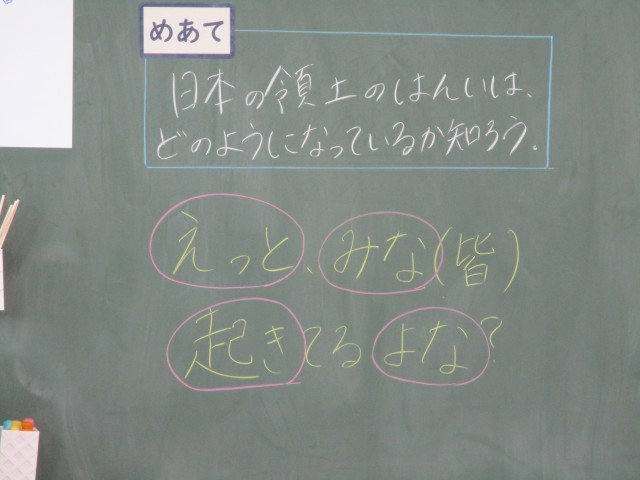 めあて
日本の領土のはんいは、
どのようになっているか知ろう。
えっと、みな(皆)
起きてるよな?